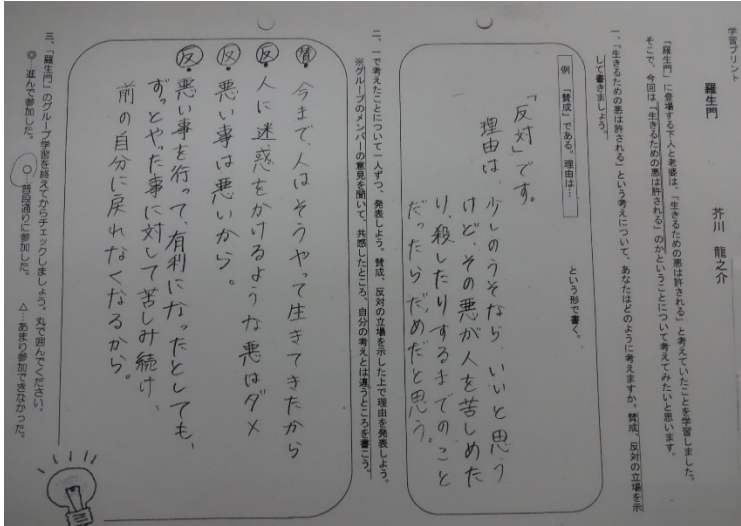 学習プリント
羅生門　芥川　龍之介
「羅生門」に登場する下人と老婆は、「生きるための悪は許される」と考えていたことを学習しました。
そこで、今回は「生きるための悪は許される」のかということについて考えてみたいと思います。
一、「生きるための悪は許される」という考えについて、あなたはどのように考えますか。賛成、反対の立場を示
して書きましょう。
例　「賛成」である。理由は…　という形で書く。
「反対」です。
理由は、少しのうそなら、いいと思う
けど、その悪が人を苦しめた
り、殺したりするまでのこと
だったらだめだと思う。
二、一で考えたことについて一人ずつ、発表しよう。賛成、反対の立場を示した上で理由を発表しよう。
※グループのメンバーの意見を聞いて、共感したところ、自分の考えとは違うところを書こう。
賛・今まで、人はそうやって生きてきたから
反・人に迷惑をかけるような悪はダメ
反・悪い事は悪いから。
反・悪い事を行って、有利になったとしても、
ずっとやった事に対して苦しみ続け、
前の自分に戻れなくなるから。
三、「羅生門」のグループ学習を終えてからチェックしましょう。丸で囲んでください。
◎…進んで参加した。　○…普段通りに参加した。　△…あまり参加できなかった。